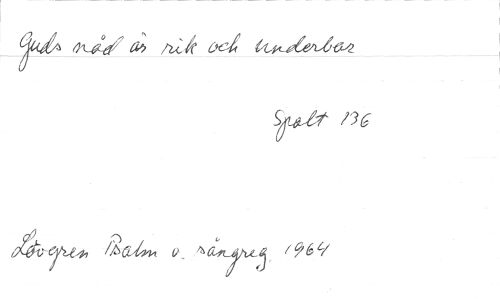 Guds nåd är rik och underbar
Spalt 136
Lövgren Psalm o. sångreg. 1964